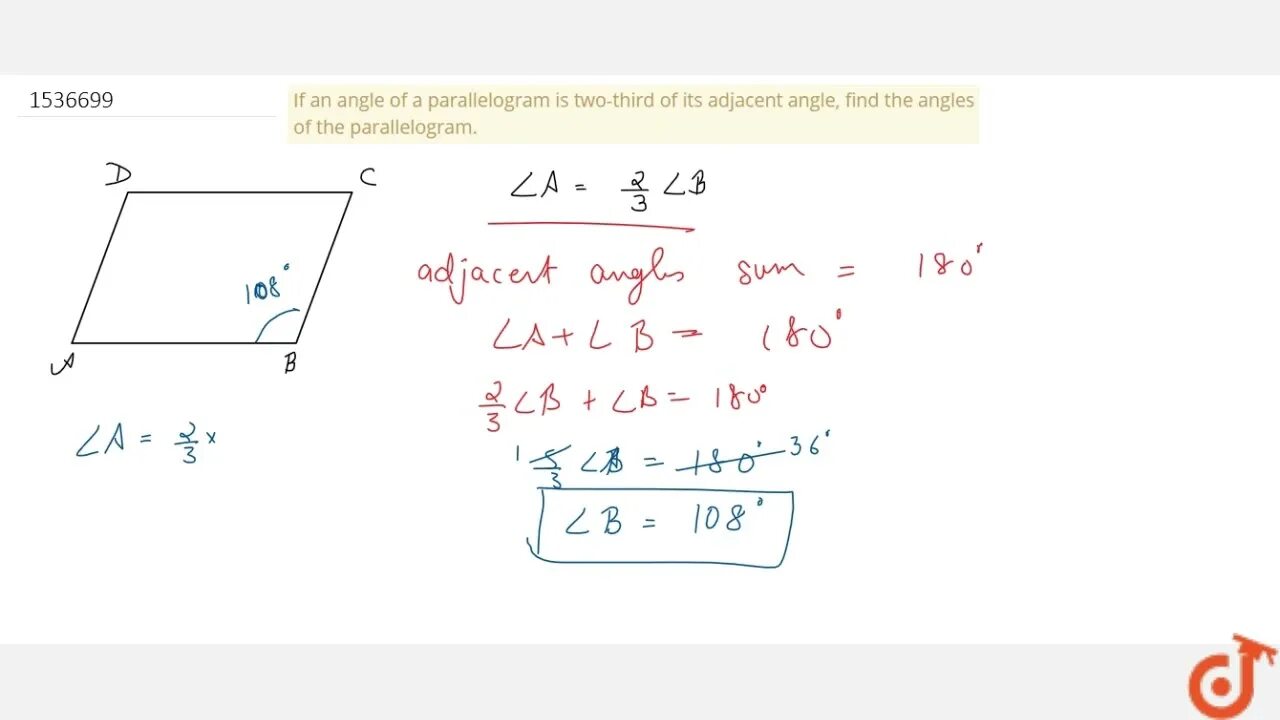 1536699
If an angle of a parallelogram is two-third of its adjacent angle, find the angles
of the parallelogram.
D C
∠A = 2/3 ∠B
adjacent angles sum = 180°
108°
∠A + ∠B = 180°
A B
2/3 ∠B + ∠B = 180°
∠A = 2/3 ×
1 5/3 ∠B = 180° 36°
∠B = 108°